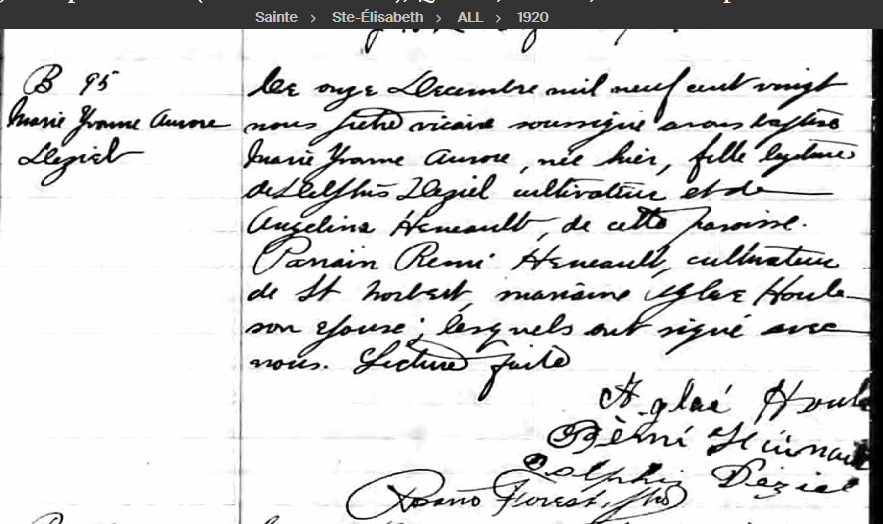 Sainte > Ste-Élisabeth > ALL > 1920
B 95
Marie Yvonne Aurore
Deziel
Le onze Decembre mil neuf cent vingt
nous prêtre vicaire soussigné avons baptisé
Marie Yvonne Aurore, née hier, fille legitime
de Delphis Deziel cultivateur et de
Angelina Heneault, de cette paroisse.
Parrain Remi Heneault, cultivateur
de St Norbert, marraine Aglae Houle
son epouse; lesquels ont signé avec
nous. Lecture faite
Aglaé Houle
Rémi
Delphis Déziel
Rosario Forest, ptre